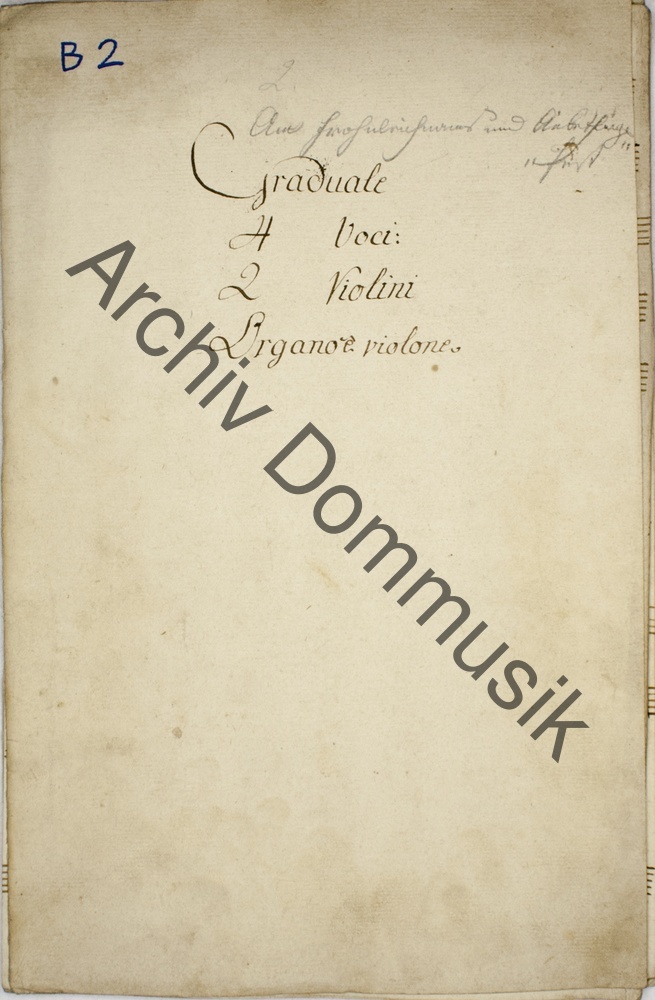 B 2
2
Am Frohnleichnams und
Fest
Graduale
4 Voci:
2 Violini
Organo è violone.
Archiv Dommusik